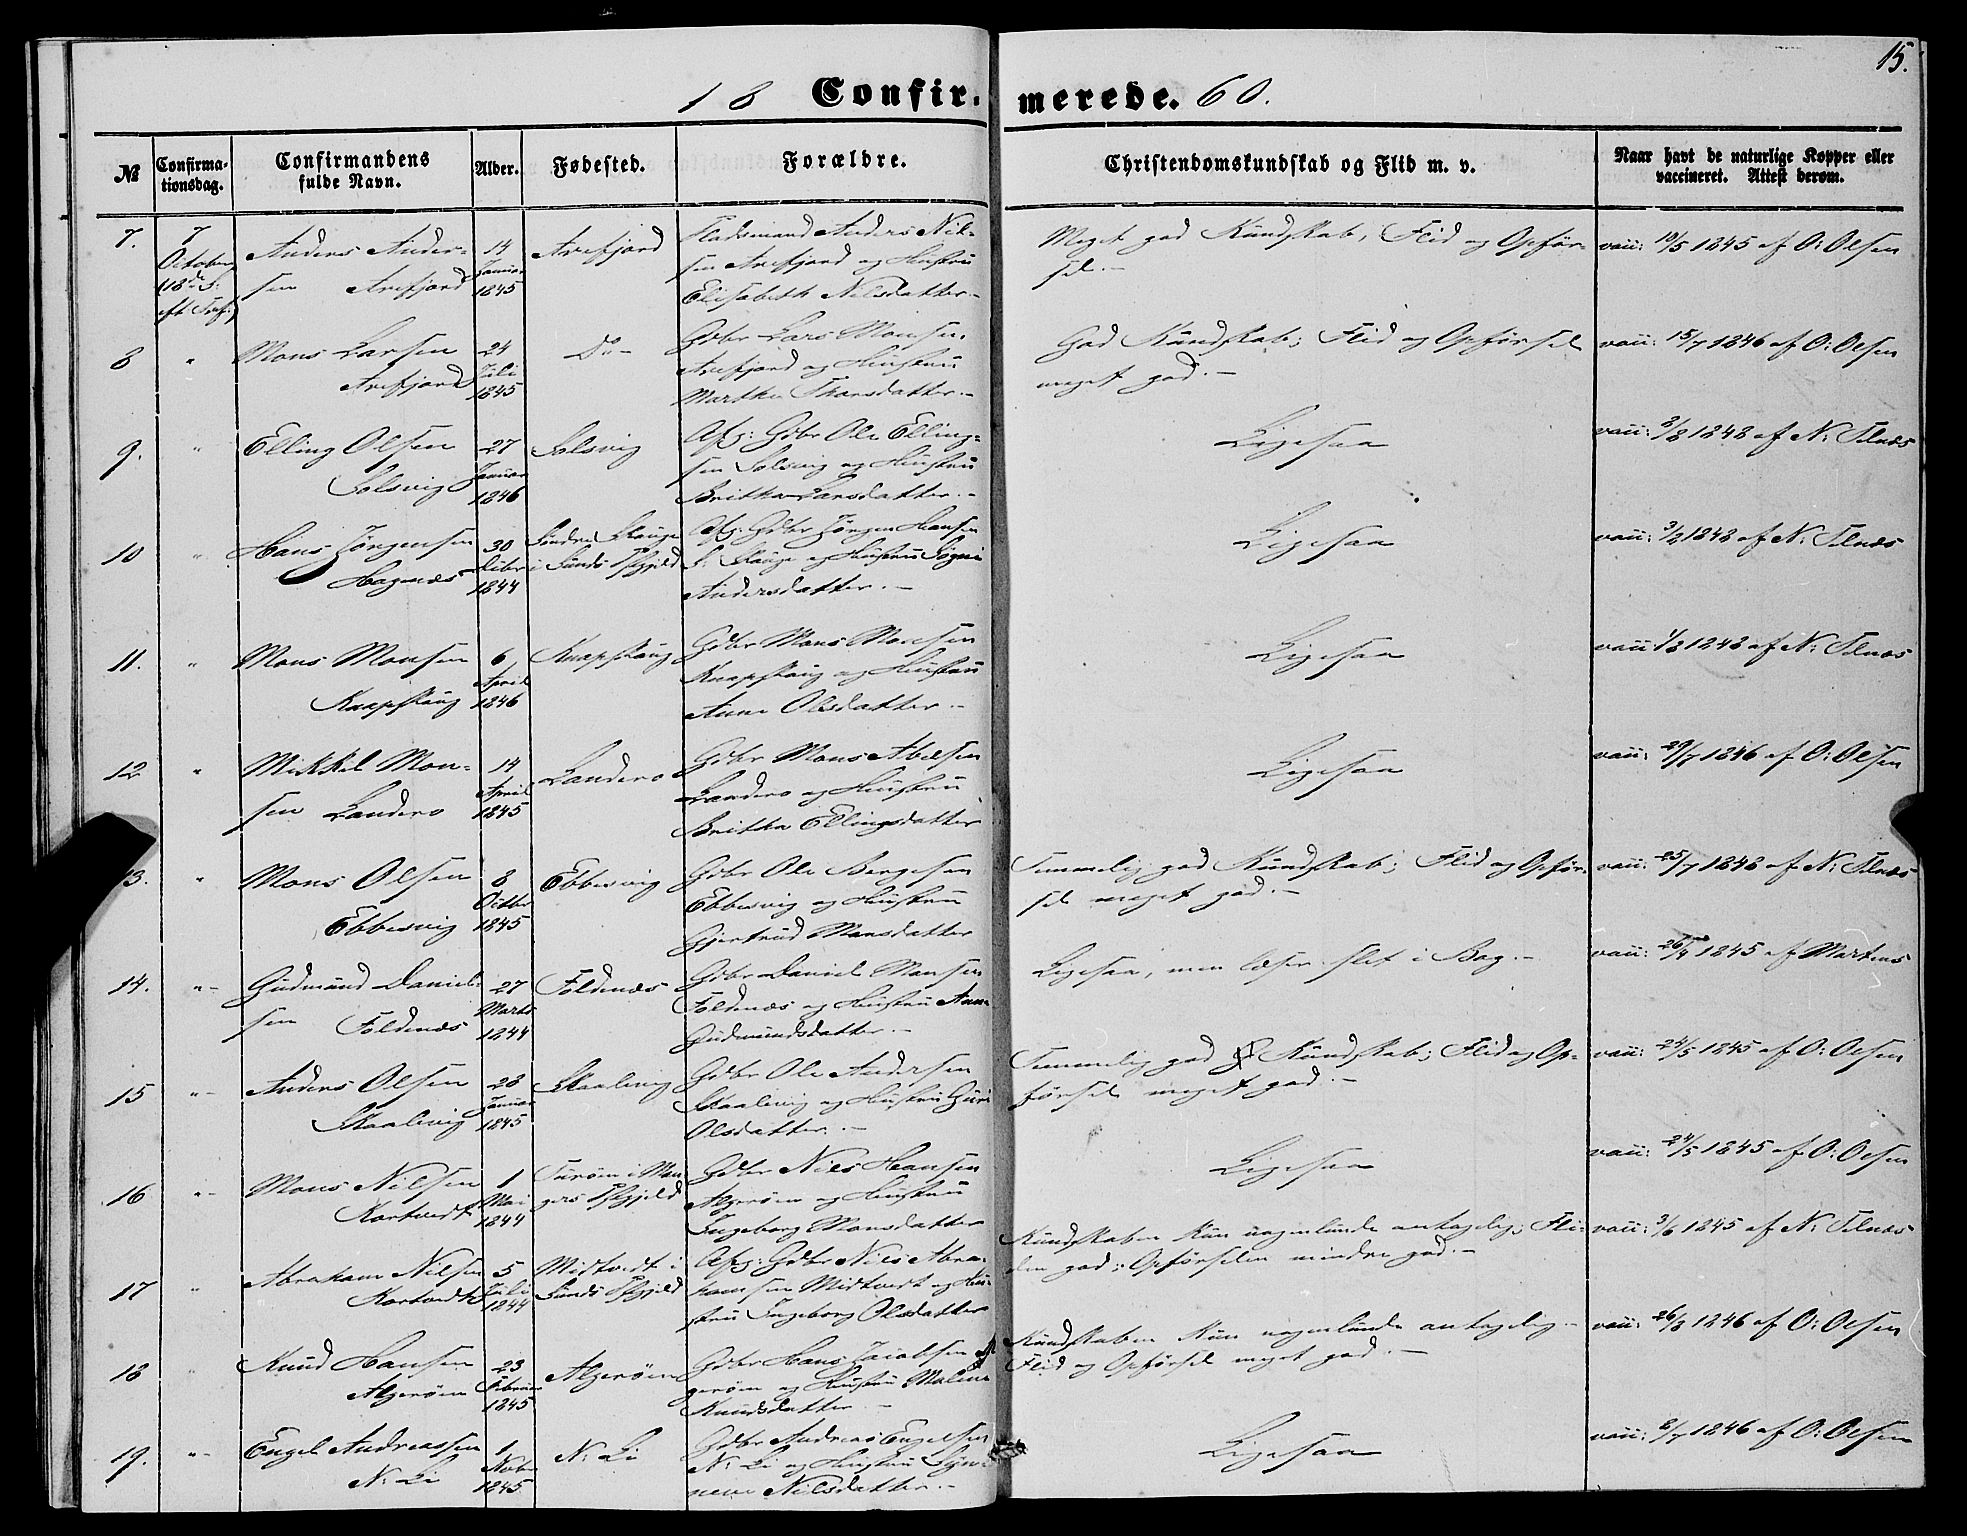 15.
18 Confirmerede. 60.
№ Confirmationsdag. Confirmandens fulde Navn. Alder. Fødested. Forældre. Christendomskundskab og Flid m. v. Naar havt de naturlige Kopper eller vaccineret. Attest derom.
7. 7 October (18de S: eft. Tref:) Anders Andersen Arefjord 14 Januar 1845 Arefjord Pladsmand Anders Nilsen Arefjord og Hustru Elisabeth Nilsdatter.- Meget god Kundskab, Flid og Opførsel.- vacc: 19/5 1845 af O: Olsen
8 " Mons Larsen Arefjord 24 Juli 1845 Do- Gdbr Lars Monsen Arefjord og Hustru Martha Thorsdatter.- God Kundskab; Flid og Opførsel meget god.- vacc: 15/7 1846 af O: Olsen
9. " Elling Olsen Solsvig 27 Januar 1846 Solsvig Afg: Gdbr Ole Ellingsen Solsvig og Hustru Britha Larsdatter.- Ligesaa vacc: 3/8 1848 af N: Telnæs
10 " Hans Jørgensen Hagenæs 30 Debr 1844 Søndre Skauge i Sunds Pgjeld Afg: Gdbr Jørgen Hansen S: Skauge og Hustru Signi Andersdatter.- Ligesaa vacc: 3/8 1848 af N: Telnæs
11. " Mons Monsen Knapskaug 6 April 1846 Knapskaug Gdbr Mons Monsen Knapskaug og Hustru Anna Olsdatter.- Ligesaa vacc 1/8 1848 af N: Telnæs
12 " Mikkel Monsen Landero 14 April 1845 Landero Gdbr Mons Abelsen Landero og Hustru Britha Ellingsdatter Ligesaa vacc: 29/7 1846 af O: Olsen
13. " Mons Olsen Ebbesvig 8 Octbr 1845 Ebbesvig Gdbr Ole Børgesen Ebbesvig og Hustru Gjertrud Monsdatter Temmelig god Kundskab; Flid og Opførsel meget god.- vacc: 25/7 1848 af N: Telnæs
14. "- Gudmund Danielsen Foldnæs 27 Marts 1844 Foldnæs Gdbr Daniel Monsen Foldnæs og Hustru Anna Gudmundsdatter.- Ligesaa, men læser slet i Bog.- vacc: 26/4 1845 af Martens
15 "- Anders Olsen Skaalevig 28 Januar 1845 Skaalevig Gdbr Ole Andersen Skaalevig og Hustru Guri Olsdatter.- Temmelig god Kundskab; Flid og Opførsel meget god.- vacc: 24/5 1845 af O: Olsen
16 "- Mons Nilsen Kartvedt 1 Mai 1844 Turøen i Mangers Pgjeld Gdbr Niels Hansen Algerøen og Hustru Ingeborg Monsdatter Ligesaa vacc: 24/5 1845 af O: Olsen
17 " Abraham Nilsen Kartvedt 5 Juli 1844 Midtvedt i Sunds Pgjeld Afg: Gdbr Niels Abrahamsen Midtvedt og Hustru Ingeborg Olsdatter Kundskaben kun nogenlunde antagelig; Fliden god; Opførselen mindre god.- vacc: 3/6 1845 af N: Telnæs
18 " Knud Hansen Algerøen 23 Februar 1845 Algerøen Gdbr Hans Jacobsen Algerøen og Hustru Malena Knudsdatter.- Kundskaben kun nogenlunde antagelig.- Flid og Opførsel meget god.- vacc: 26/8 1846 af O: Olsen
19. "- Engel Andreassen N: Li 1 Novbr 1845 N: Li Gdbr Andreas Engelsen N: Li og Hustru Synneve Nilsdatter.- Ligesaa vacc: 8/7 1846 af O: Olsen